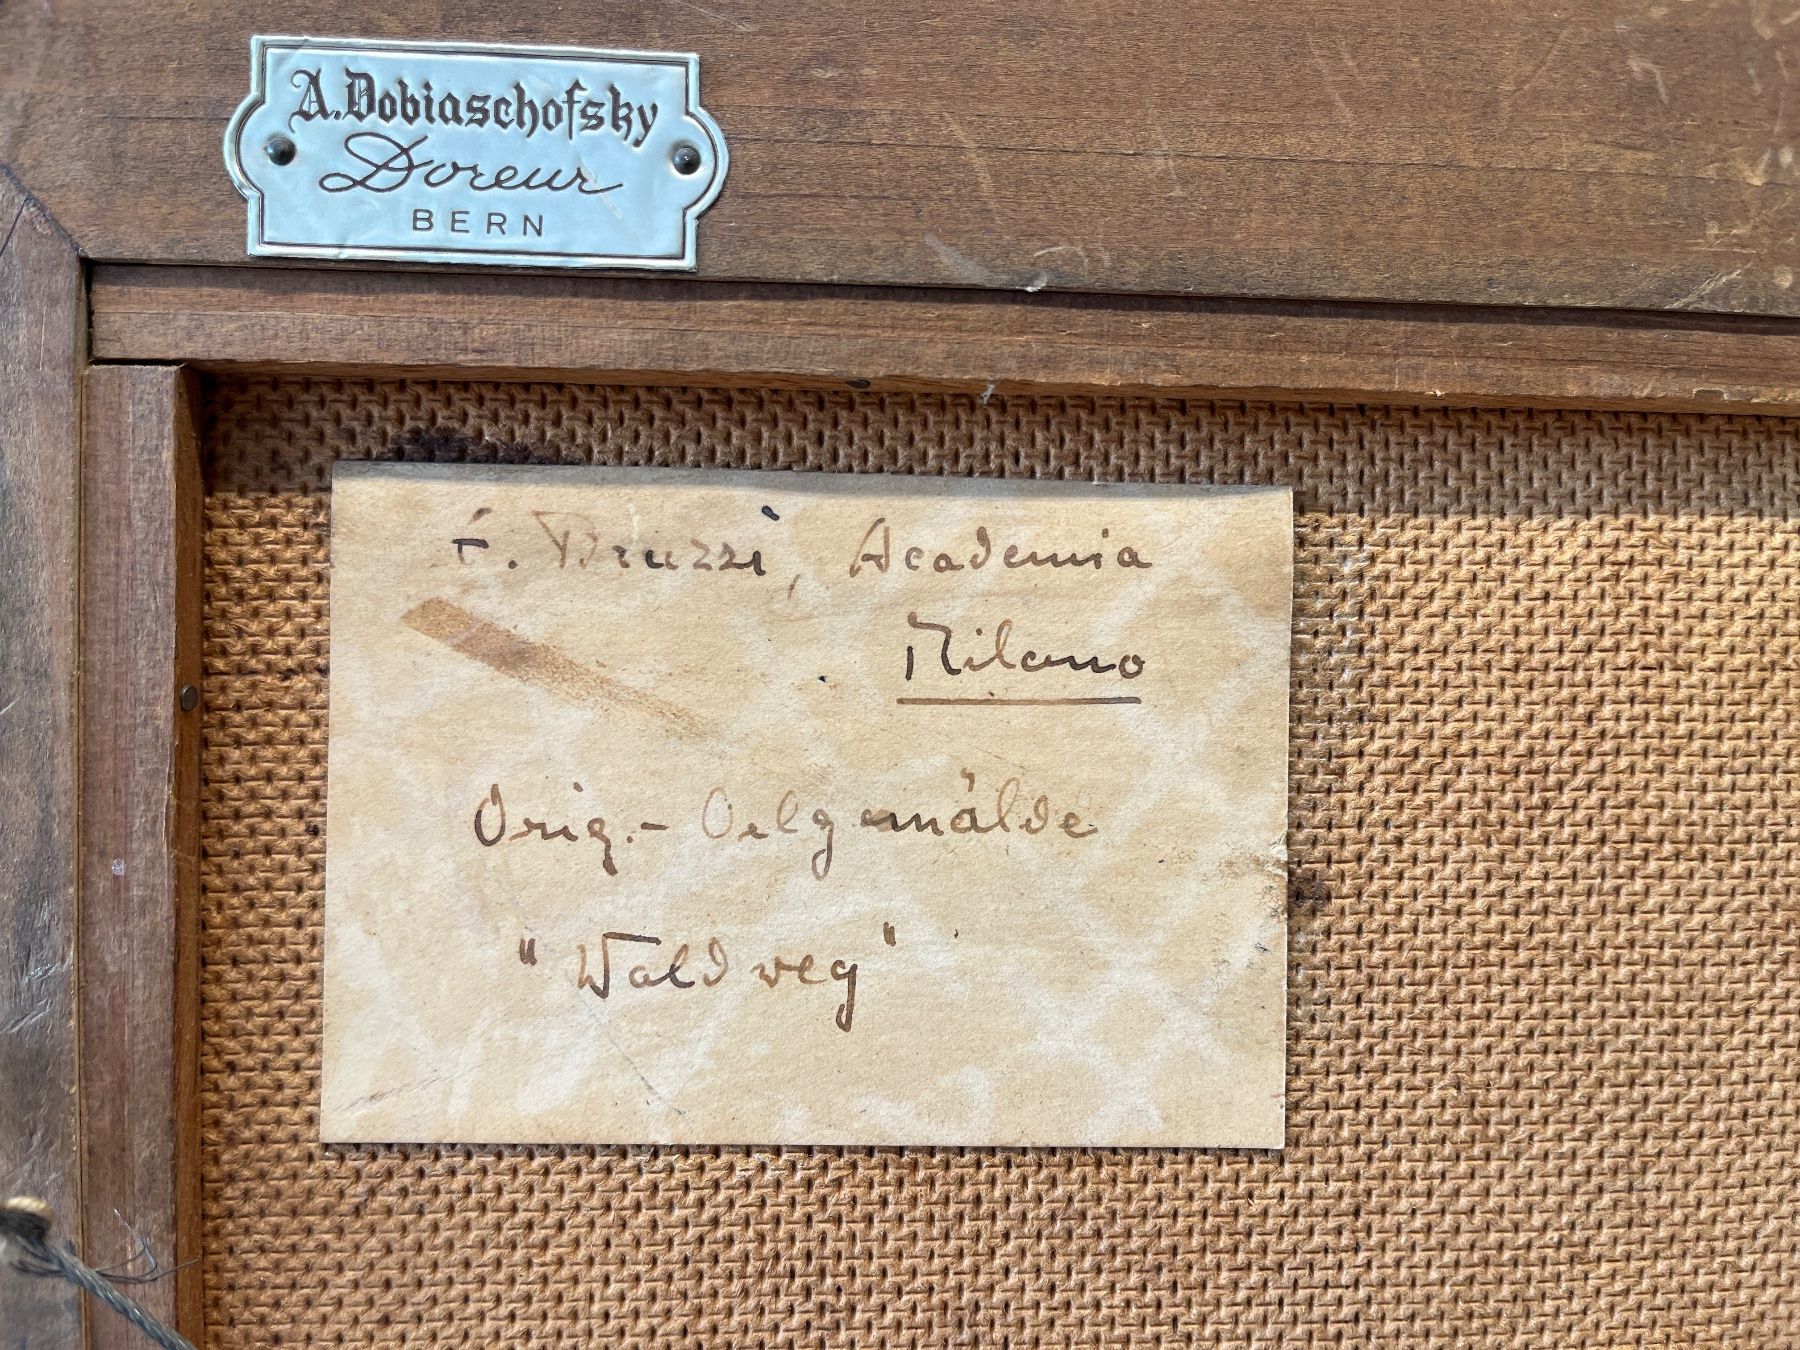 A. Dobiaschofsky
Doreur
BERN
F. Bruzzi, Academia
Milano
Orig.- Oelgemälde
"Waldweg"